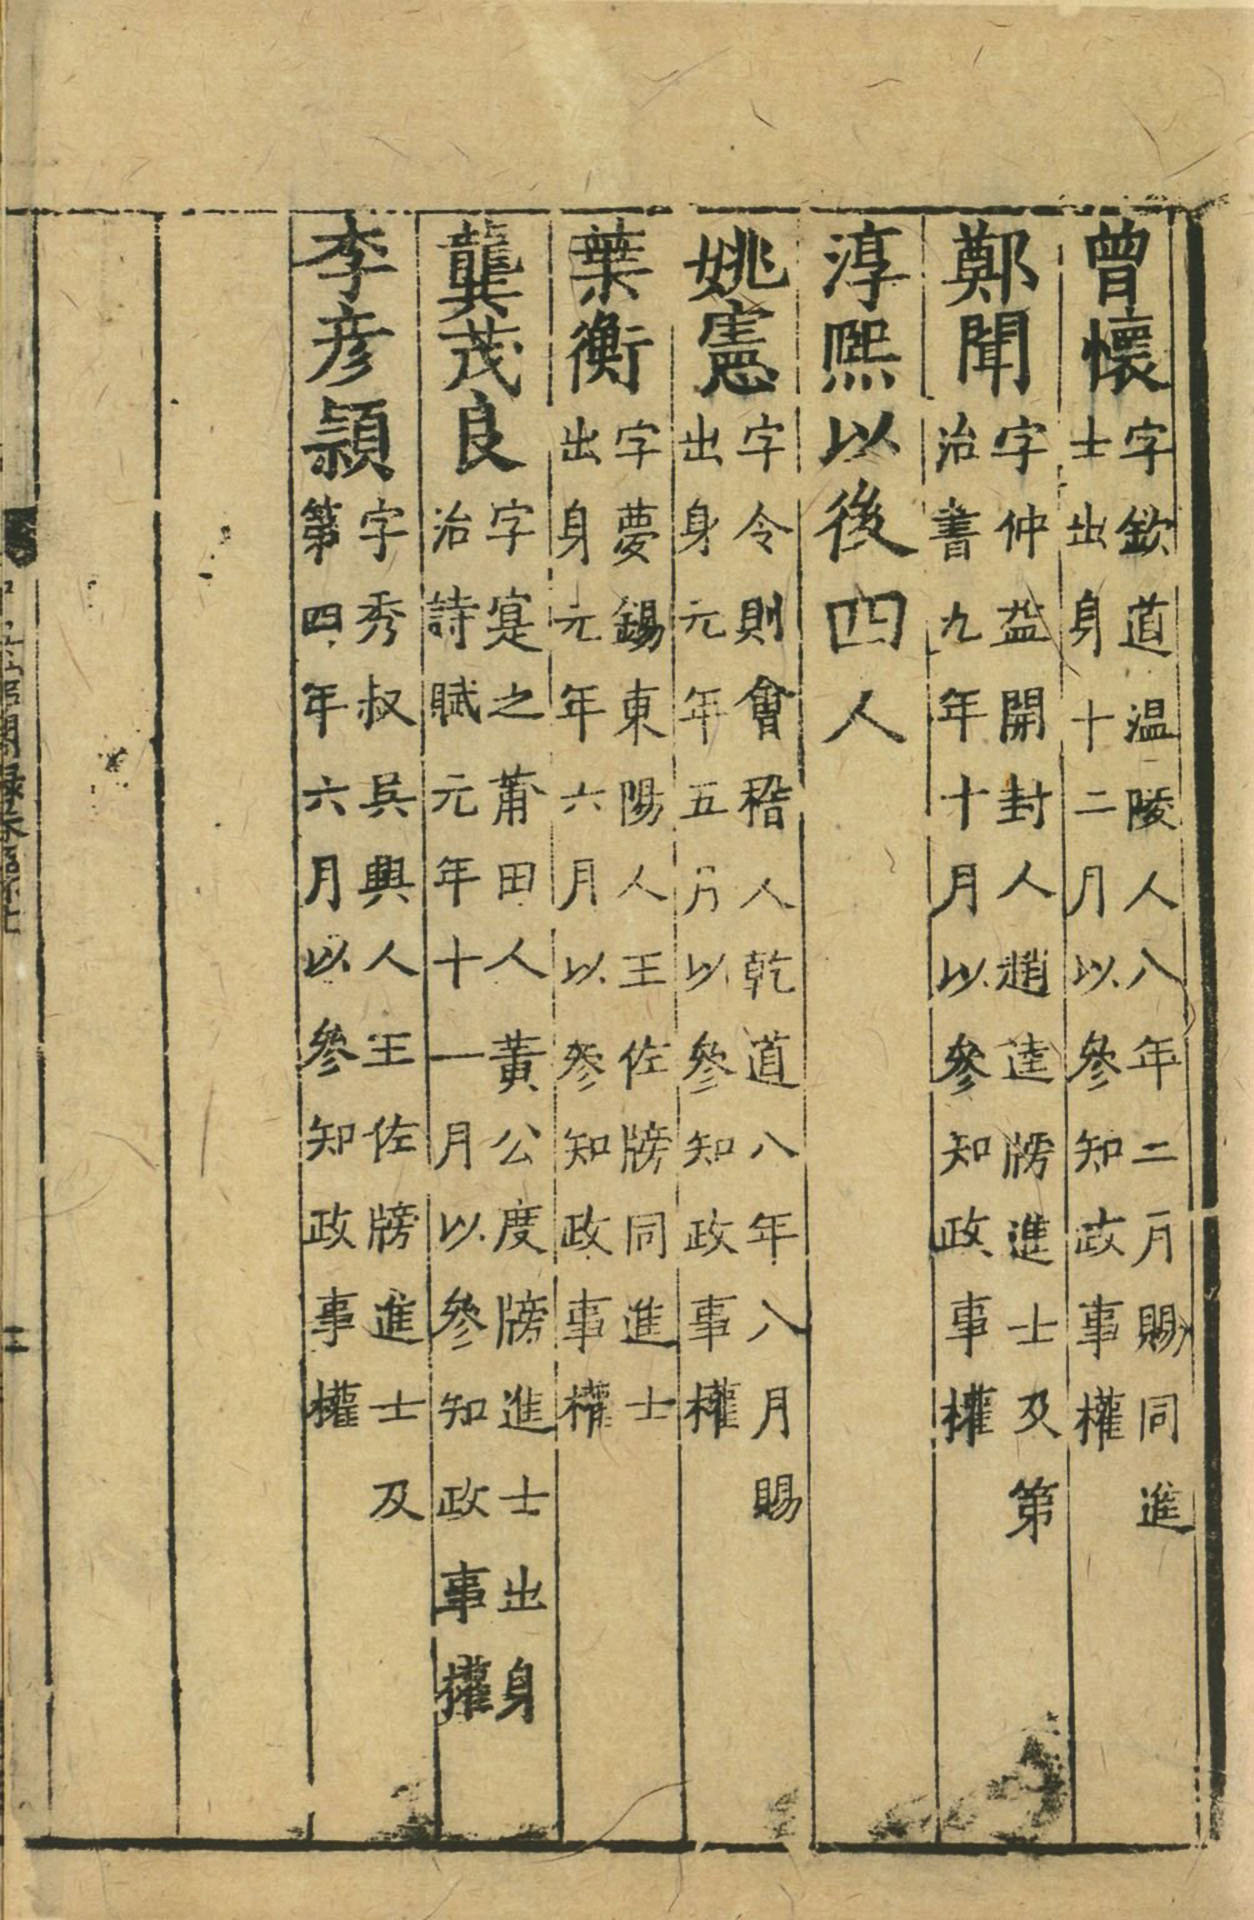 曾懷字欽道温陵人八年二月賜同進
士出身十二月以參知政事權
鄭聞字仲益開封人趙逵牓進士及第
治書九年十月以參知政事權
淳熙以後四人
姚憲字令則會稽人乾道八年八月賜
出身元年五月以參知政事權
葉衡字夢錫東陽人王佐牓同進士
出身元年六月以參知政事權
龔茂良字寔之莆田人黃公度牓進士出身
治詩賦元年十一月以參知政事權
李彥頴字秀叔吳興人王佐牓進士及
第四年六月以參知政事權